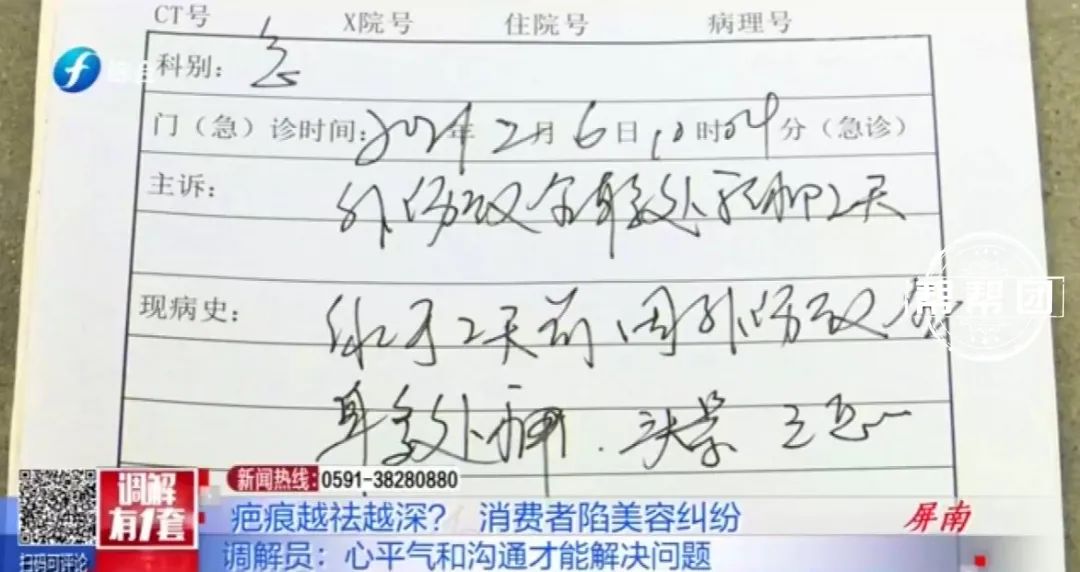 CT号 X院号 住院号 病理号
科别：急
门（急）诊时间：2024年2月6日10时04分（急诊）
主诉：外伤致全身多处疼痛2天
现病史：缘于2天前因外伤致全
身多处疼痛．头晕
帮帮团
新闻热线：0591-38280880
调解有1套
疤痕越祛越深？ 消费者陷美容纠纷
屏南
调解员：心平气和沟通才能解决问题
扫码可评论